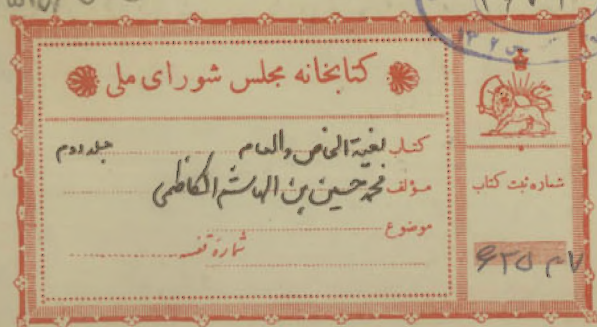 کتابخانه مجلس شورای ملی
کتاب بغیة الخاص والعام جلد دوم
مؤلف محمد حسین بن الهاشم الکاظمی
موضوع
شمارهٔ قفسه
شماره ثبت کتاب